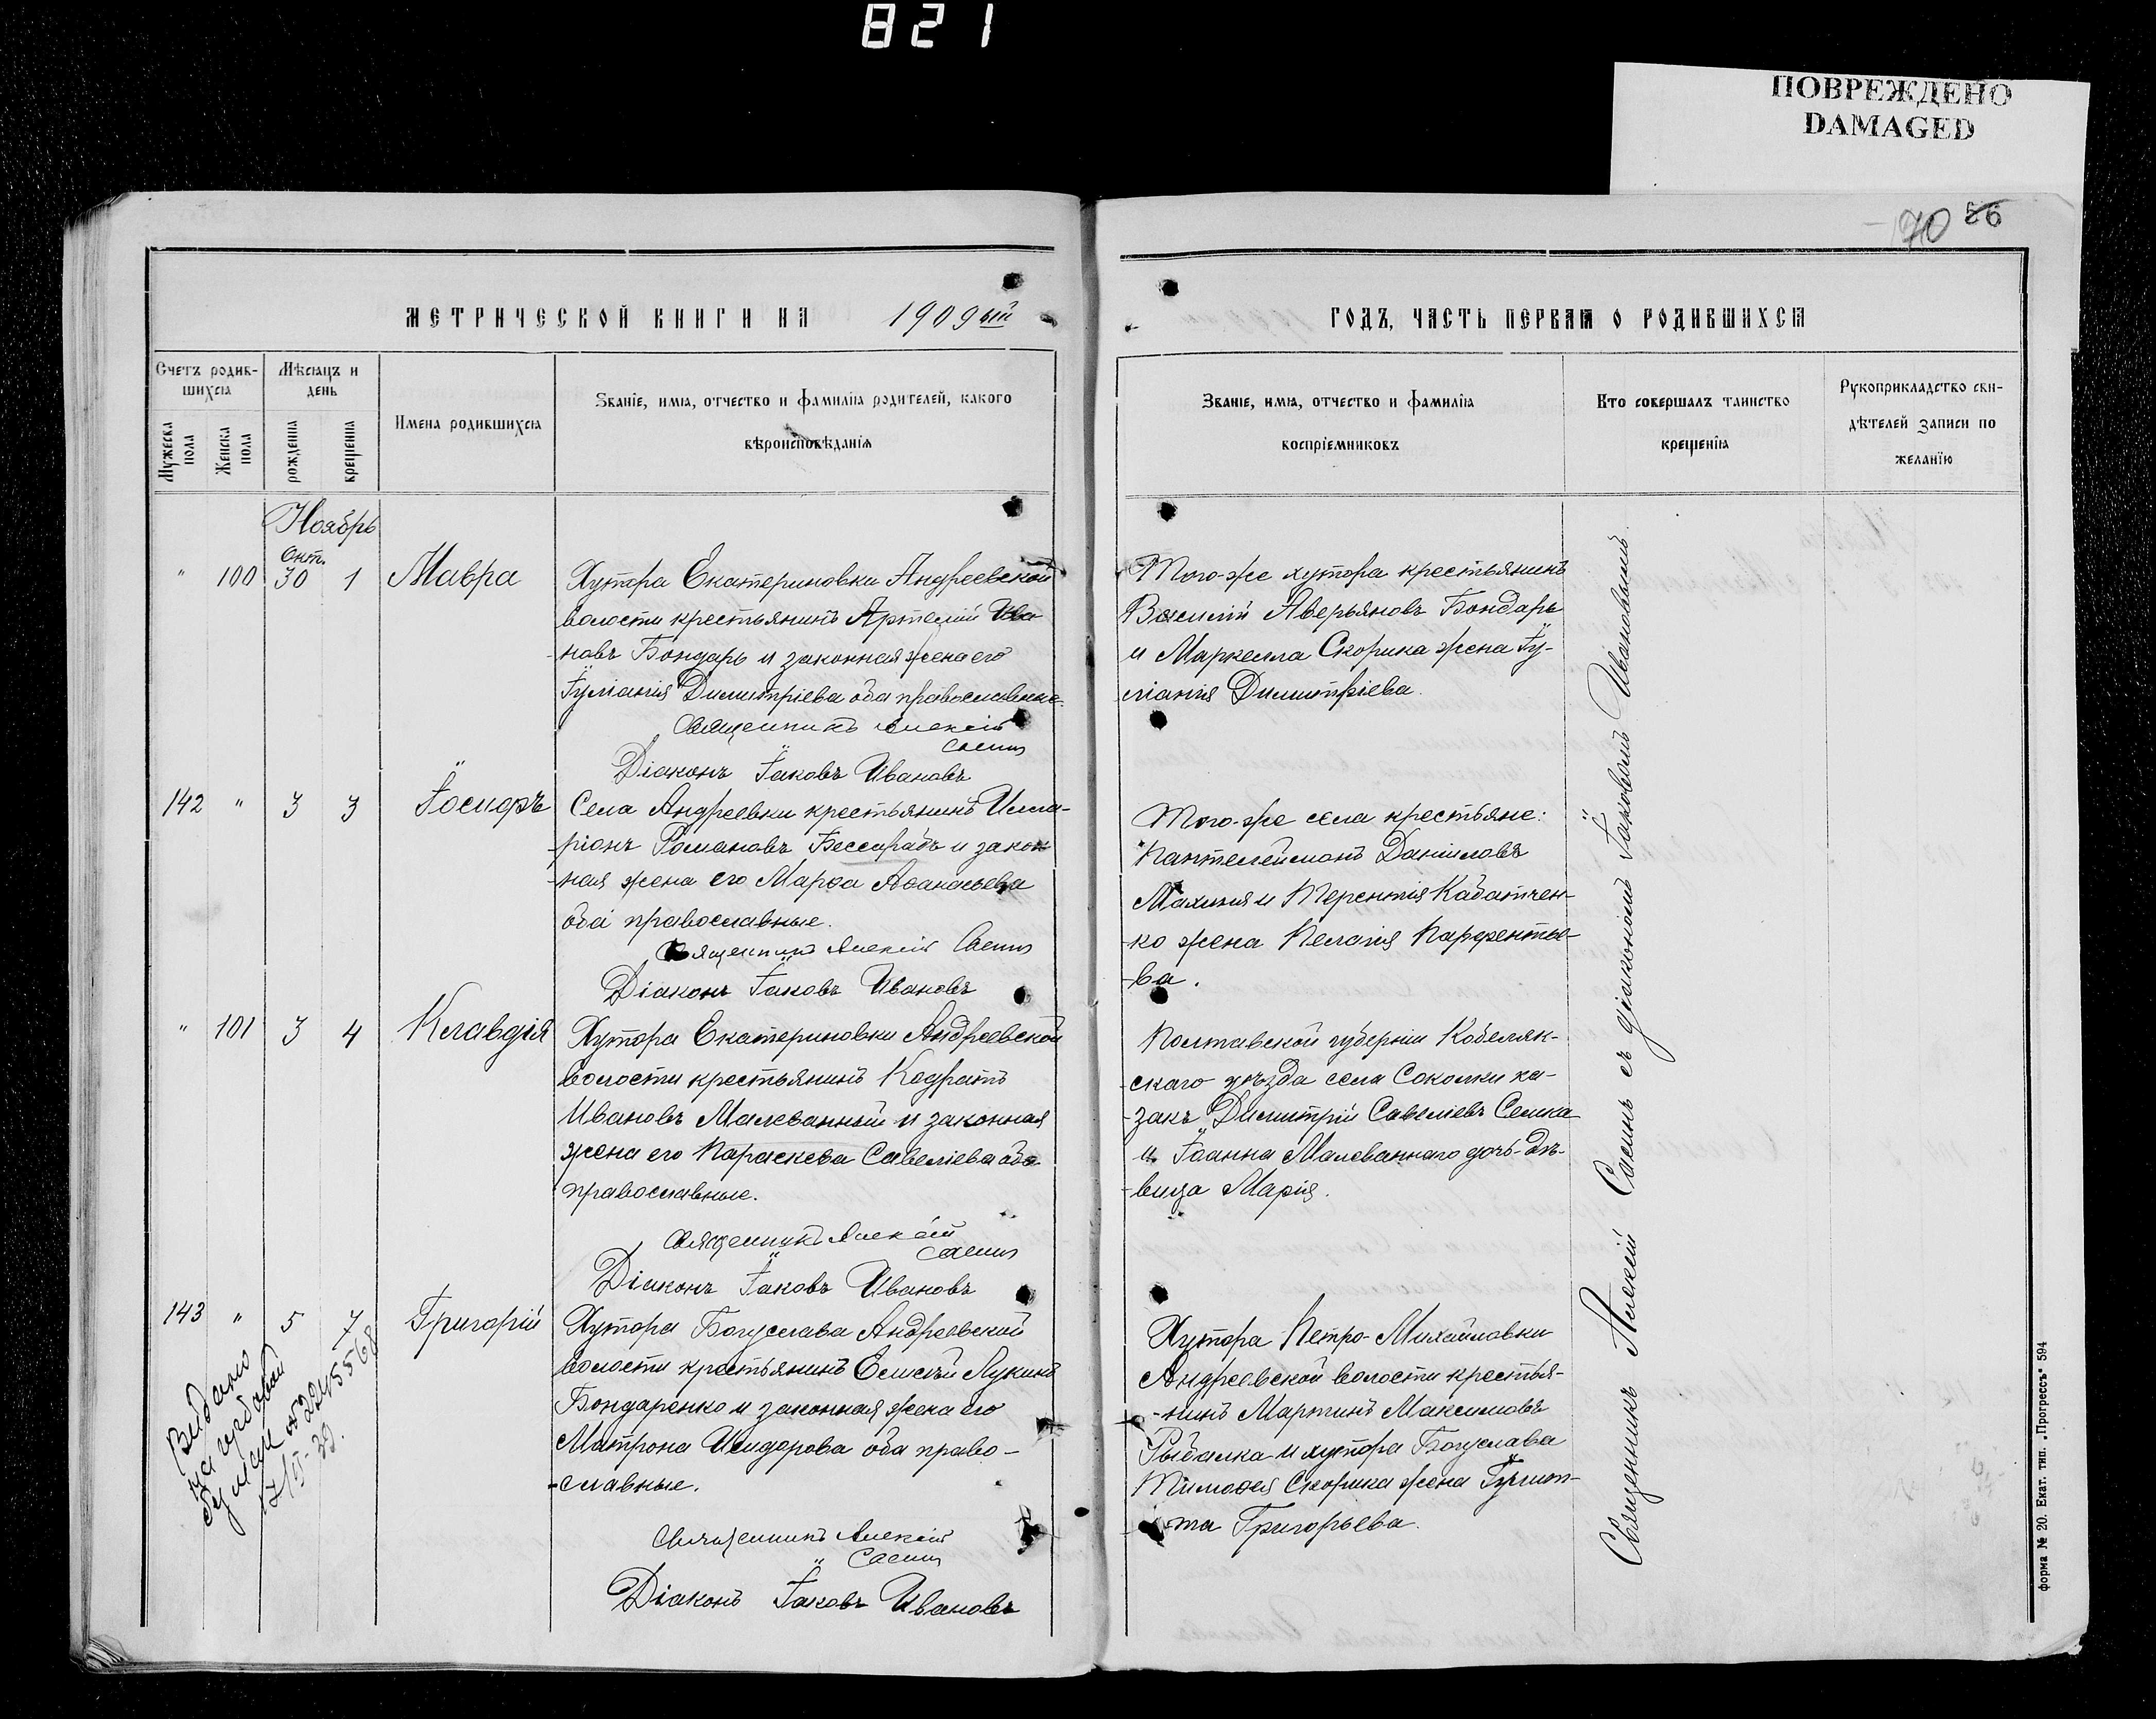 821
ПОВРЕЖДЕНО
DAMAGED
70 56
МЕТРИЧЕСКОЙ КНИГИ НА 1909ый
ГОДЪ, ЧАСТЬ ПЕРВАЯ О РОДИВШИХСЯ
Счетъ родив-
шихся
Мѣсяцъ и
день
Мужеска
пола
Женска
пола
рожденія
крещенія
Имена родившихся
Званіе, имя, отчество и фамилія родителей, какого
вѣроисповѣданія
Званіе, имя, отчество и фамилія
воспріемниковъ
Кто совершалъ таинство
крещенія
Рукоприкладство сви-
дѣтелей записи по
желанію
Ноябрь
Окт.
" 100 30 1 Мавра
Хутора Екатериновки Андреевской
волости крестьянинъ Артемій Ива
новъ Бондарь и законная жена его
Іуліанія Димитріева оба православные.
Священникъ Алексій
Саенъ
Діаконъ Іаковъ Ивановъ
Того-же хутора крестьянинъ
Василій Аверьяновъ Бондарь
и Маркелла Скорика жена Іу-
ліанія Димитріева.
142 " 3 3 Іосифъ
Села Андреевки крестьянинъ Илла-
-ріонъ Романовъ Бессарабъ и закон
-ная жена его Марѳа Аѳанасьева
оба православные.
Священникъ Алексій Саенъ
Діаконъ Іаковъ Ивановъ
Того-же села крестьяне:
Пантелеймонъ Даниловъ
Махиня и Терентія Кабатчен-
-ко жена Пелагія Парфентье-
-ва.
" 101 3 4 Клавдія
Хутора Екатериновки Андреевской
волости крестьянинъ Кодратъ
Ивановъ Малеванный и законная
жена его Параскева Савеліева оба
православные.
Священникъ Алексій
Саенъ
Діаконъ Іаковъ Ивановъ
Полтавской губерніи Кобеляк-
-скаго уѣзда села Соколки ка-
-закъ Димитрій Савеліевъ Семка
и Іоанна Малеваннаго дочь-дѣ-
-вица Марія.
143 " 5 7 Григорій
Хутора Богуслава Андреевской
волости крестьянинъ Елисей Лукинъ
Бондаренко и законная жена его
Матрона Исидорова оба право-
-славные.
Священникъ Алексій
Саенъ
Діаконъ Іаковъ Ивановъ
Хутора Петро-Михайловки
Андреевской волости крестья-
-нинъ Мартинъ Максимовъ
Рыбалка и хутора Богуслава
Тимоѳея Скорика жена Іулит-
-та Григорьева.
Видано
на гербовой
17/II-39.
Священникъ Алексій Саенъ съ діакономъ Іаковомъ Ивановымъ
форма № 20. Екат. тип. „Прогрессъ" 594